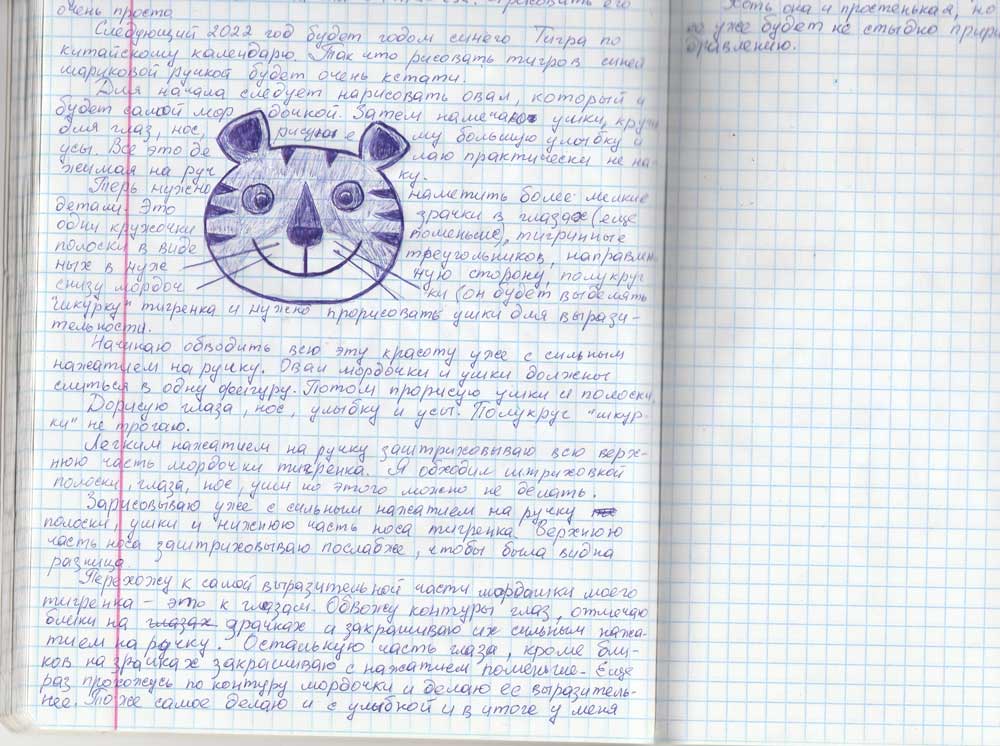 рисовать его
очень просто
Следующий 2022 год будет годом синего Тигра по
китайскому календарю. Так что рисовать тигров синей
шариковой ручкой будет очень кстати.
Для начала следует нарисовать овал, который и
будет самой мордочкой. Затем намечаю ушки, круги
для глаз, нос, рисую ему большую улыбку и
усы. Все это делаю практически не на-
жимая на ручку.
Терь нужно наметить более мелкие
детали. Это зрачки в глазах (еще
одни кружочки поменьше), тигринные
полоски в виде треугольников, направлен-
ных в нужную сторону, полукруг
снизу мордочки (он будет выделять
"шкурку" тигренка и нужно прорисовать ушки для вырази-
тельности.
Начинаю обводить всю эту красоту уже с сильным
нажатием на ручку. Овал мордочки и ушки должны
слиться в одну фигуру. Потом прорисую ушки и полоски.
Дорисую глаза, нос, улыбку и усы. Полукруг "шкур-
ки" не трогаю.
Легким нажатием на ручку заштриховываю всю верх-
нюю часть мордочки тигренка. Я обходил штриховкой
полоски, глаза, нос, уши но этого можно не делать.
Зарисовываю уже с сильным нажатием на ручку
полоски, ушки и нижнюю часть носа тигренка. Верхнюю
часть носа заштриховываю послабже, чтобы была видна
разница.
Перехожу к самой выразительной части мордашки моего
тигренка - это к глазам. Обвожу контуры глаз, отмечаю
блики на глазах зрачках и закрашиваю их сильным нажа-
тием на ручку. Остальную часть глаза, кроме бли-
ков на зрачках закрашиваю с нажатием поменьше. Еще
раз прохожусь по контуру мордочки и делаю ее выразитель-
нее. То же самое делаю и с улыбкой и в итоге у меня
Хоть она и простенькая, но
го уже будет не стыдно